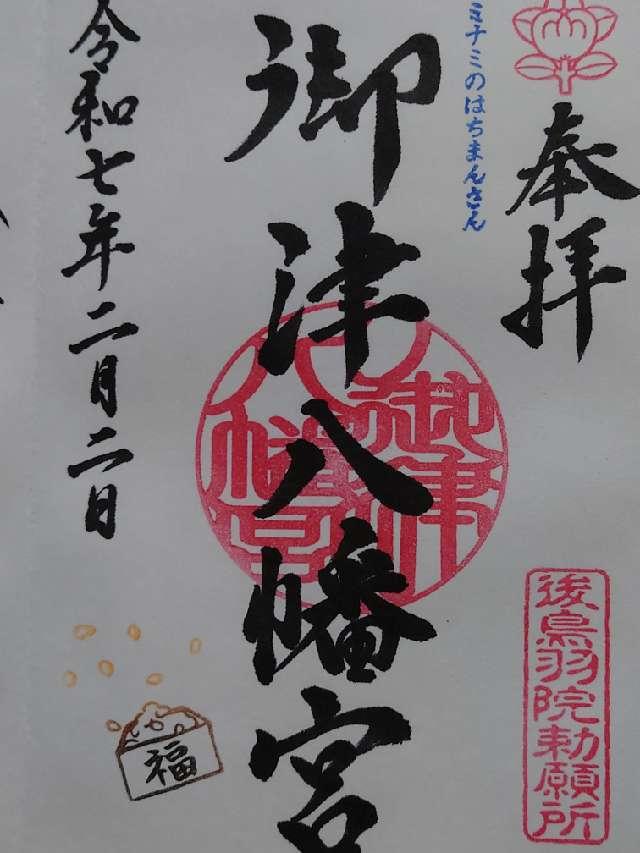 奉拝
ミナミのはちまんさん
御津八幡宮
御津八幡宮
後鳥羽院勅願所
令和七年二月二日
福